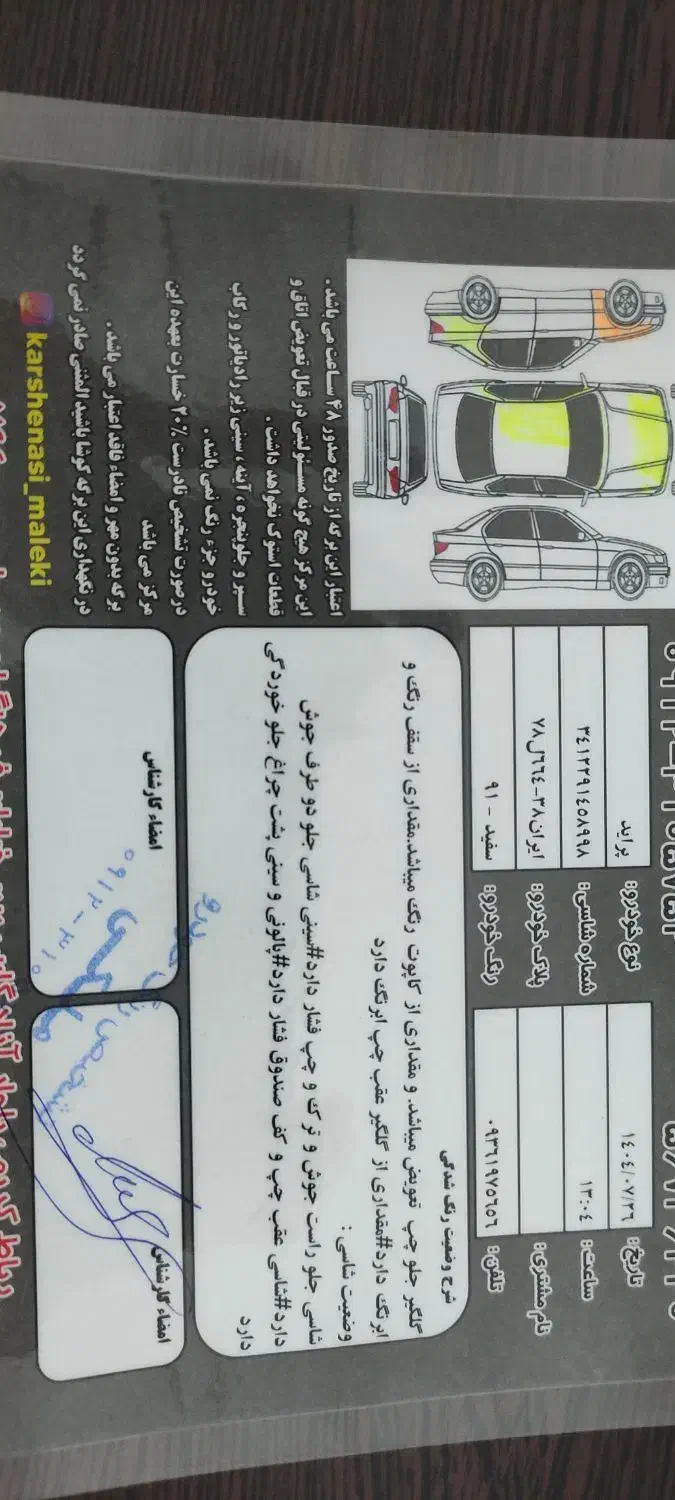 تاریخ: ۱٤۰٤/۰۷/۲٦
ساعت: ۱۳:۰٤
نام مشتری:
تلفن: ۰۹۳٦۱۹۷۵٦۵٦
نوع خودرو: پراید
شماره شاسی: ۳٤۱۲۲۹۱٤۵۸۹۹۸
پلاک خودرو: ایران۳۸-٦٦٤ل۷۸
رنگ خودرو: سفید - ۹۱
شرح وضعیت رنگ شدگی
گلگیر جلو چپ تعویض میباشد. و مقداری از کاپوت رنگ میباشد.مقداری از سقف رنگ و
ابرنگ دارد#مقداری از گلگیر عقب چپ ابرنگ دارد
وضعیت شاسی :
شاسی جلو راست جوش و ترک و چپ فشار دارد#سینی شاسی جلو دو طرف جوش
دارد#شاسی عقب چپ و کف صندوق فشار دارد#پالونی و سینی پشت چراغ جلو خوردگی
دارد
اعتبار این برگه از تاریخ صدور ۴۸ ساعت می باشد .
این مرکز هیچ گونه مسئولیتی در قبال تعویض اتاق و
قطعات استوک نخواهد داشت .
سپر و جلوپنجره ، آینه ، سینی زیر رادیاتور و رکاب
خودرو جزء رنگ نمی باشد .
در صورت تشخیص نادرست ۲۰٪ خسارت بعهده این
مرکز می باشد
برگه بدون مهر و امضاء فاقد اعتبار می باشد .
در نگهداری این برگه کوشا باشید المثنی صادر نمی گردد
karshenasi_maleki
امضاء کارشناس
امضاء کارشناس